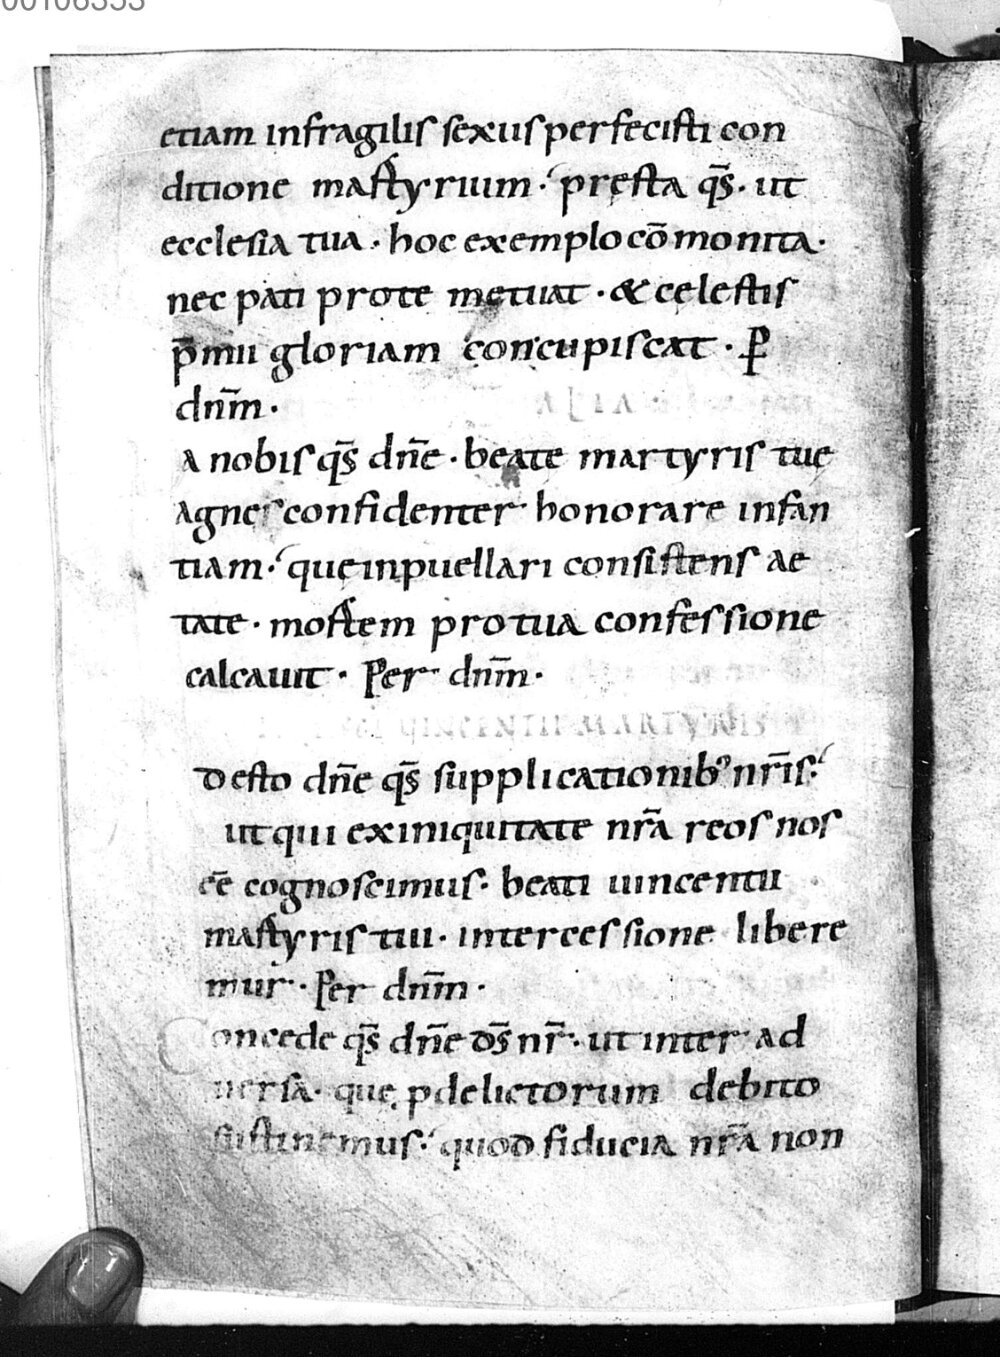 00106353
etiam infragilis sexus perfecisti con
ditione martyrium· pręsta q̄s· ut
ecclesia tua· hoc exemplo cōmonita·
nec pati pro te metuat· & celestis
p̄mii gloriam concupiscat· P
dn̄m·
ALIA
A nobis q̄s dn̄e· beate martyris tuę
Agnes confidenter honorare infan
tiam· quę in puellari consistens ae
tate· mortem pro tua confessione
calcauit· Per dn̄m·
UINCENTII MARTYRIS
desto dn̄e q̄s supplicationib; nr̄is·
ut qui ex iniquitate nr̄a reos nos
eē cognoscimus· beati uincentii
martyris tui· intercessione libere
mur· Per dn̄m·
Concede q̄s dn̄e d̄s nr̄· ut inter ad
uersa· quę p delictorum debito
sustinemus· quod fiducia nr̄a non